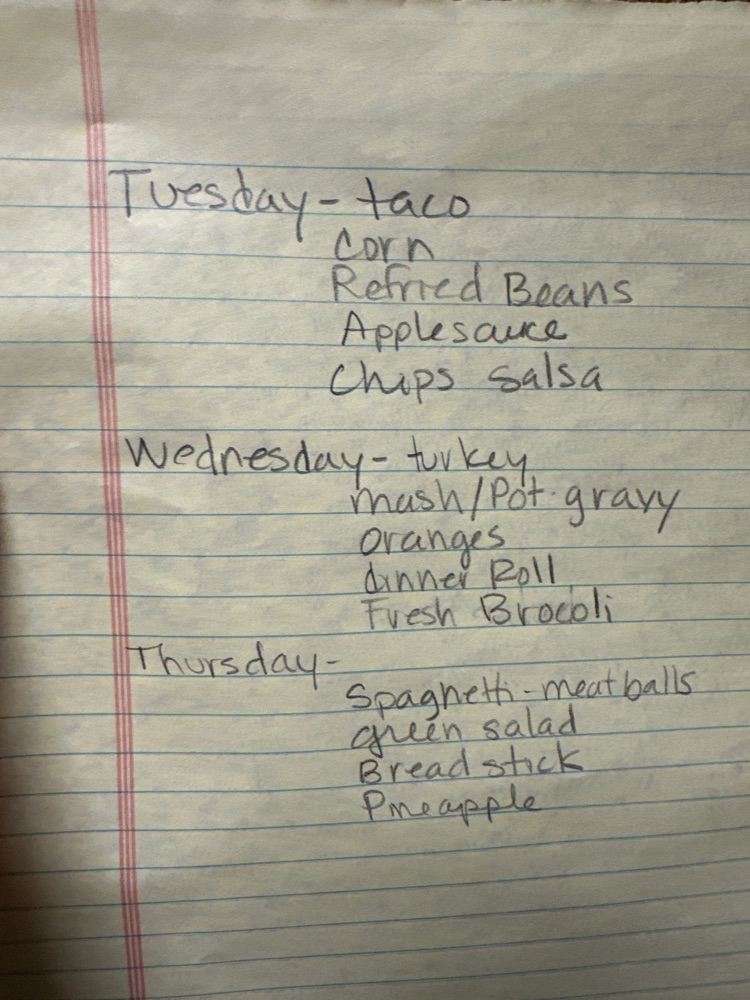 Tuesday - taco
Corn
Refried Beans
Applesauce
Chips salsa
Wednesday - turkey
mash/Pot. gravy
oranges
dinner Roll
Fresh Brocoli
Thursday -
Spaghetti - meatballs
green salad
Bread stick
Pineapple